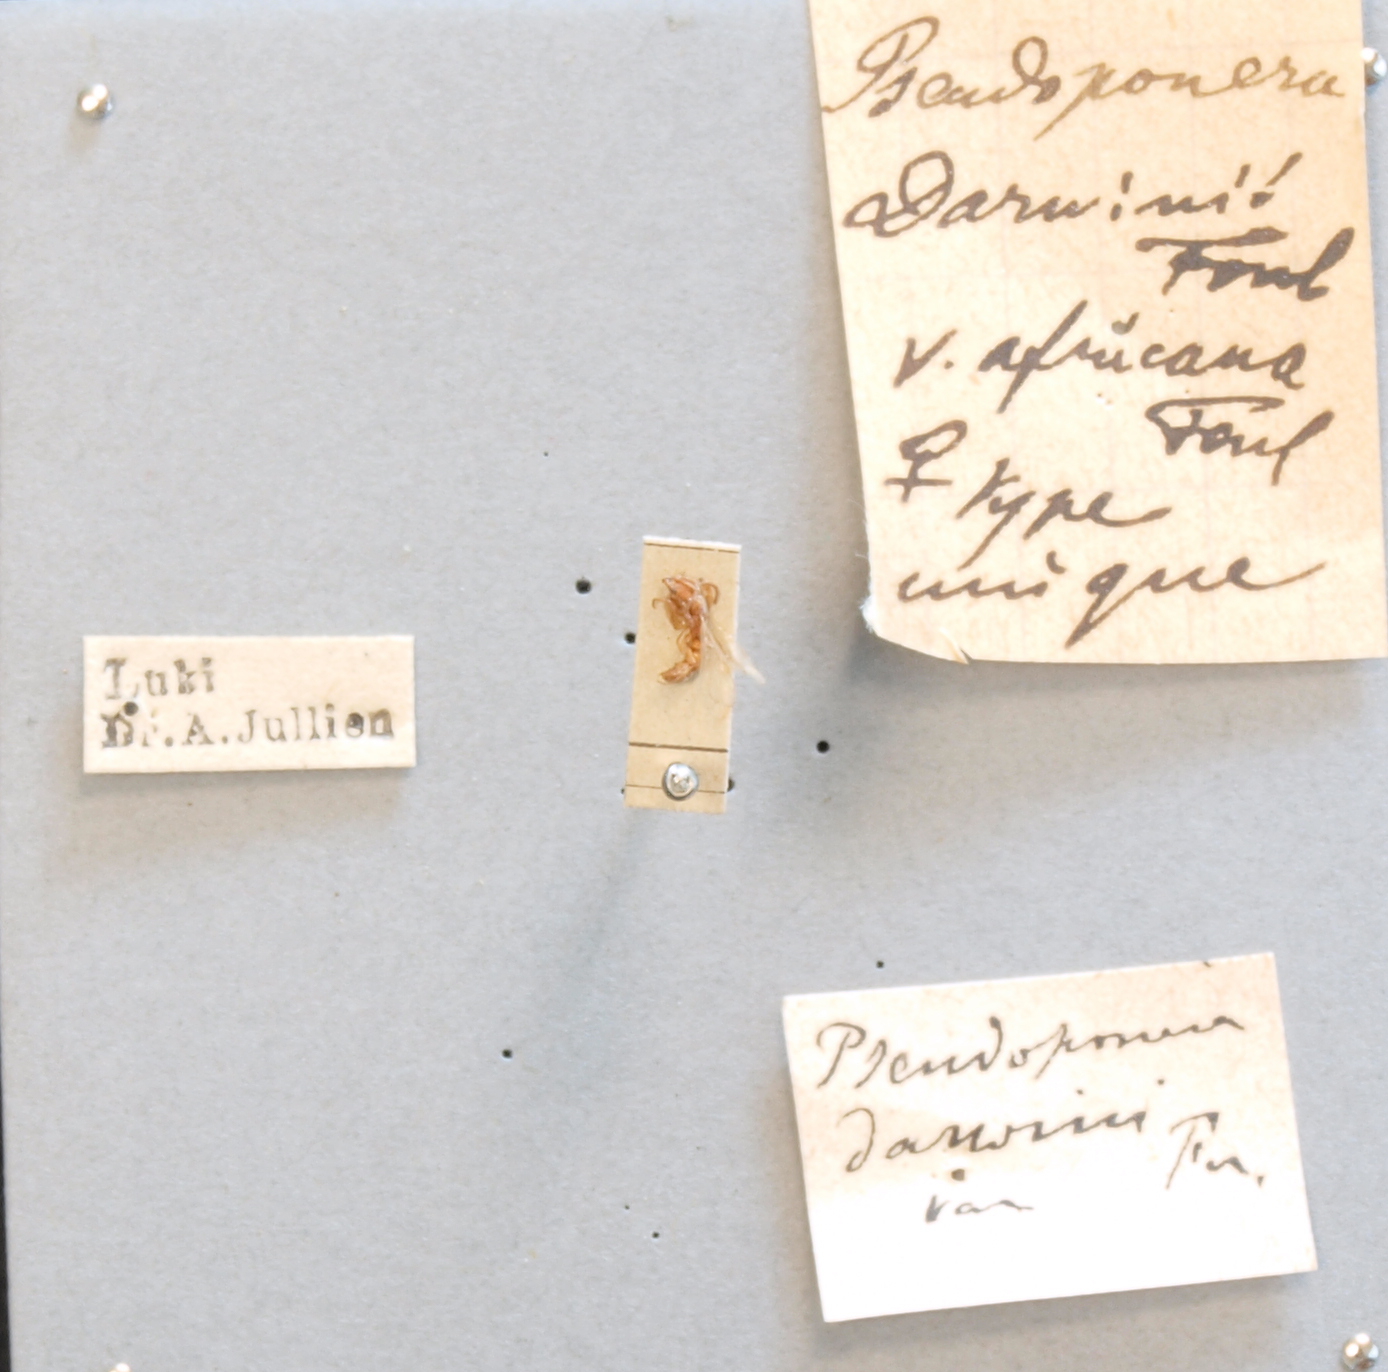 Pseudoponera
Darwinii
Forel
v. africana
Forel
♀ type
unique
Luki
Dr.A.Jullien
Pseudoponera
darwini
Fr.
var